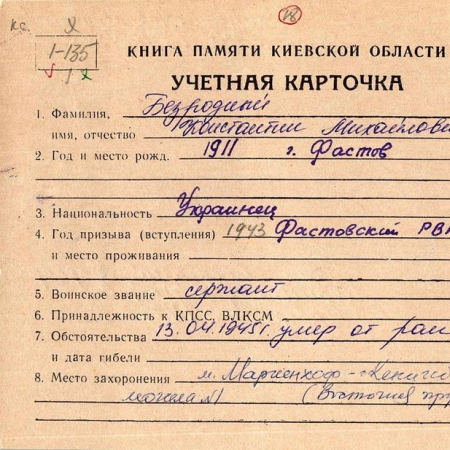 1-135
КНИГА ПАМЯТИ КИЕВСКОЙ ОБЛАСТИ
УЧЕТНАЯ КАРТОЧКА
1. Фамилия, Безродный
имя, отчество Константин Михайлови
2. Год и место рожд. 1911 г. Фастов
3. Национальность Украинец
4. Год призыва (вступления) 1943 Фастовский РВ
и место проживания
5. Воинское звание сержант
6. Принадлежность к КПСС, ВЛКСМ
7. Обстоятельства 13.04.1945г. умер от ран
и дата гибели
8. Место захоронения м. Мариенхоф-Кениг
могила №1 (Восточная пр